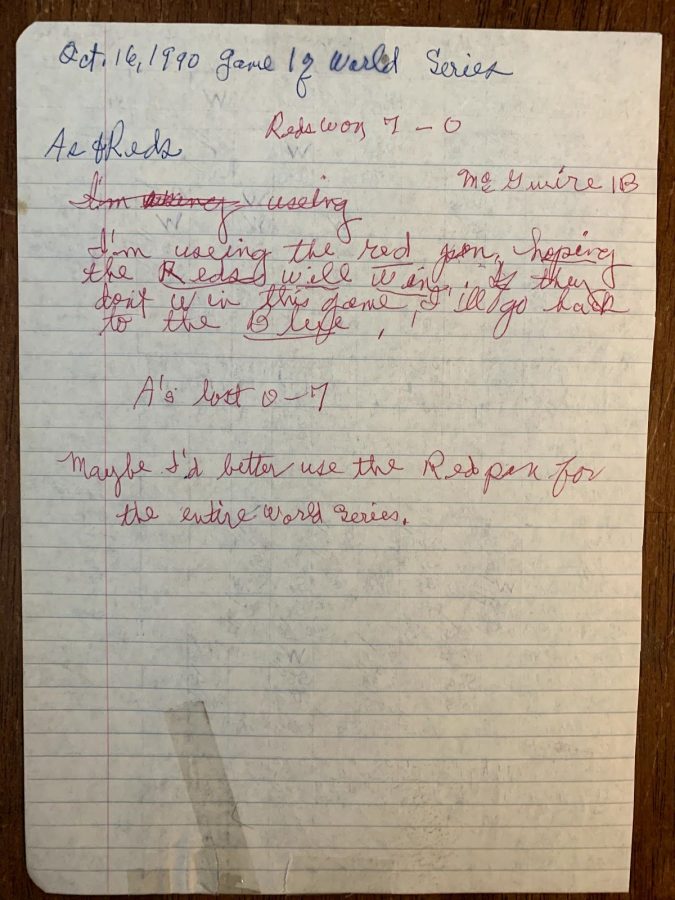 Oct. 16, 1990 Game 1 of World Series
Reds won 7 - 0
As & Reds
McGwire 1B
I'm useing
I'm useing the red pen, hoping
the Reds will win. If they
don't win this game, I'll go back
to the Blue,
A's lost 0-7
Maybe I'd better use the Red pen for
the entire World Series.